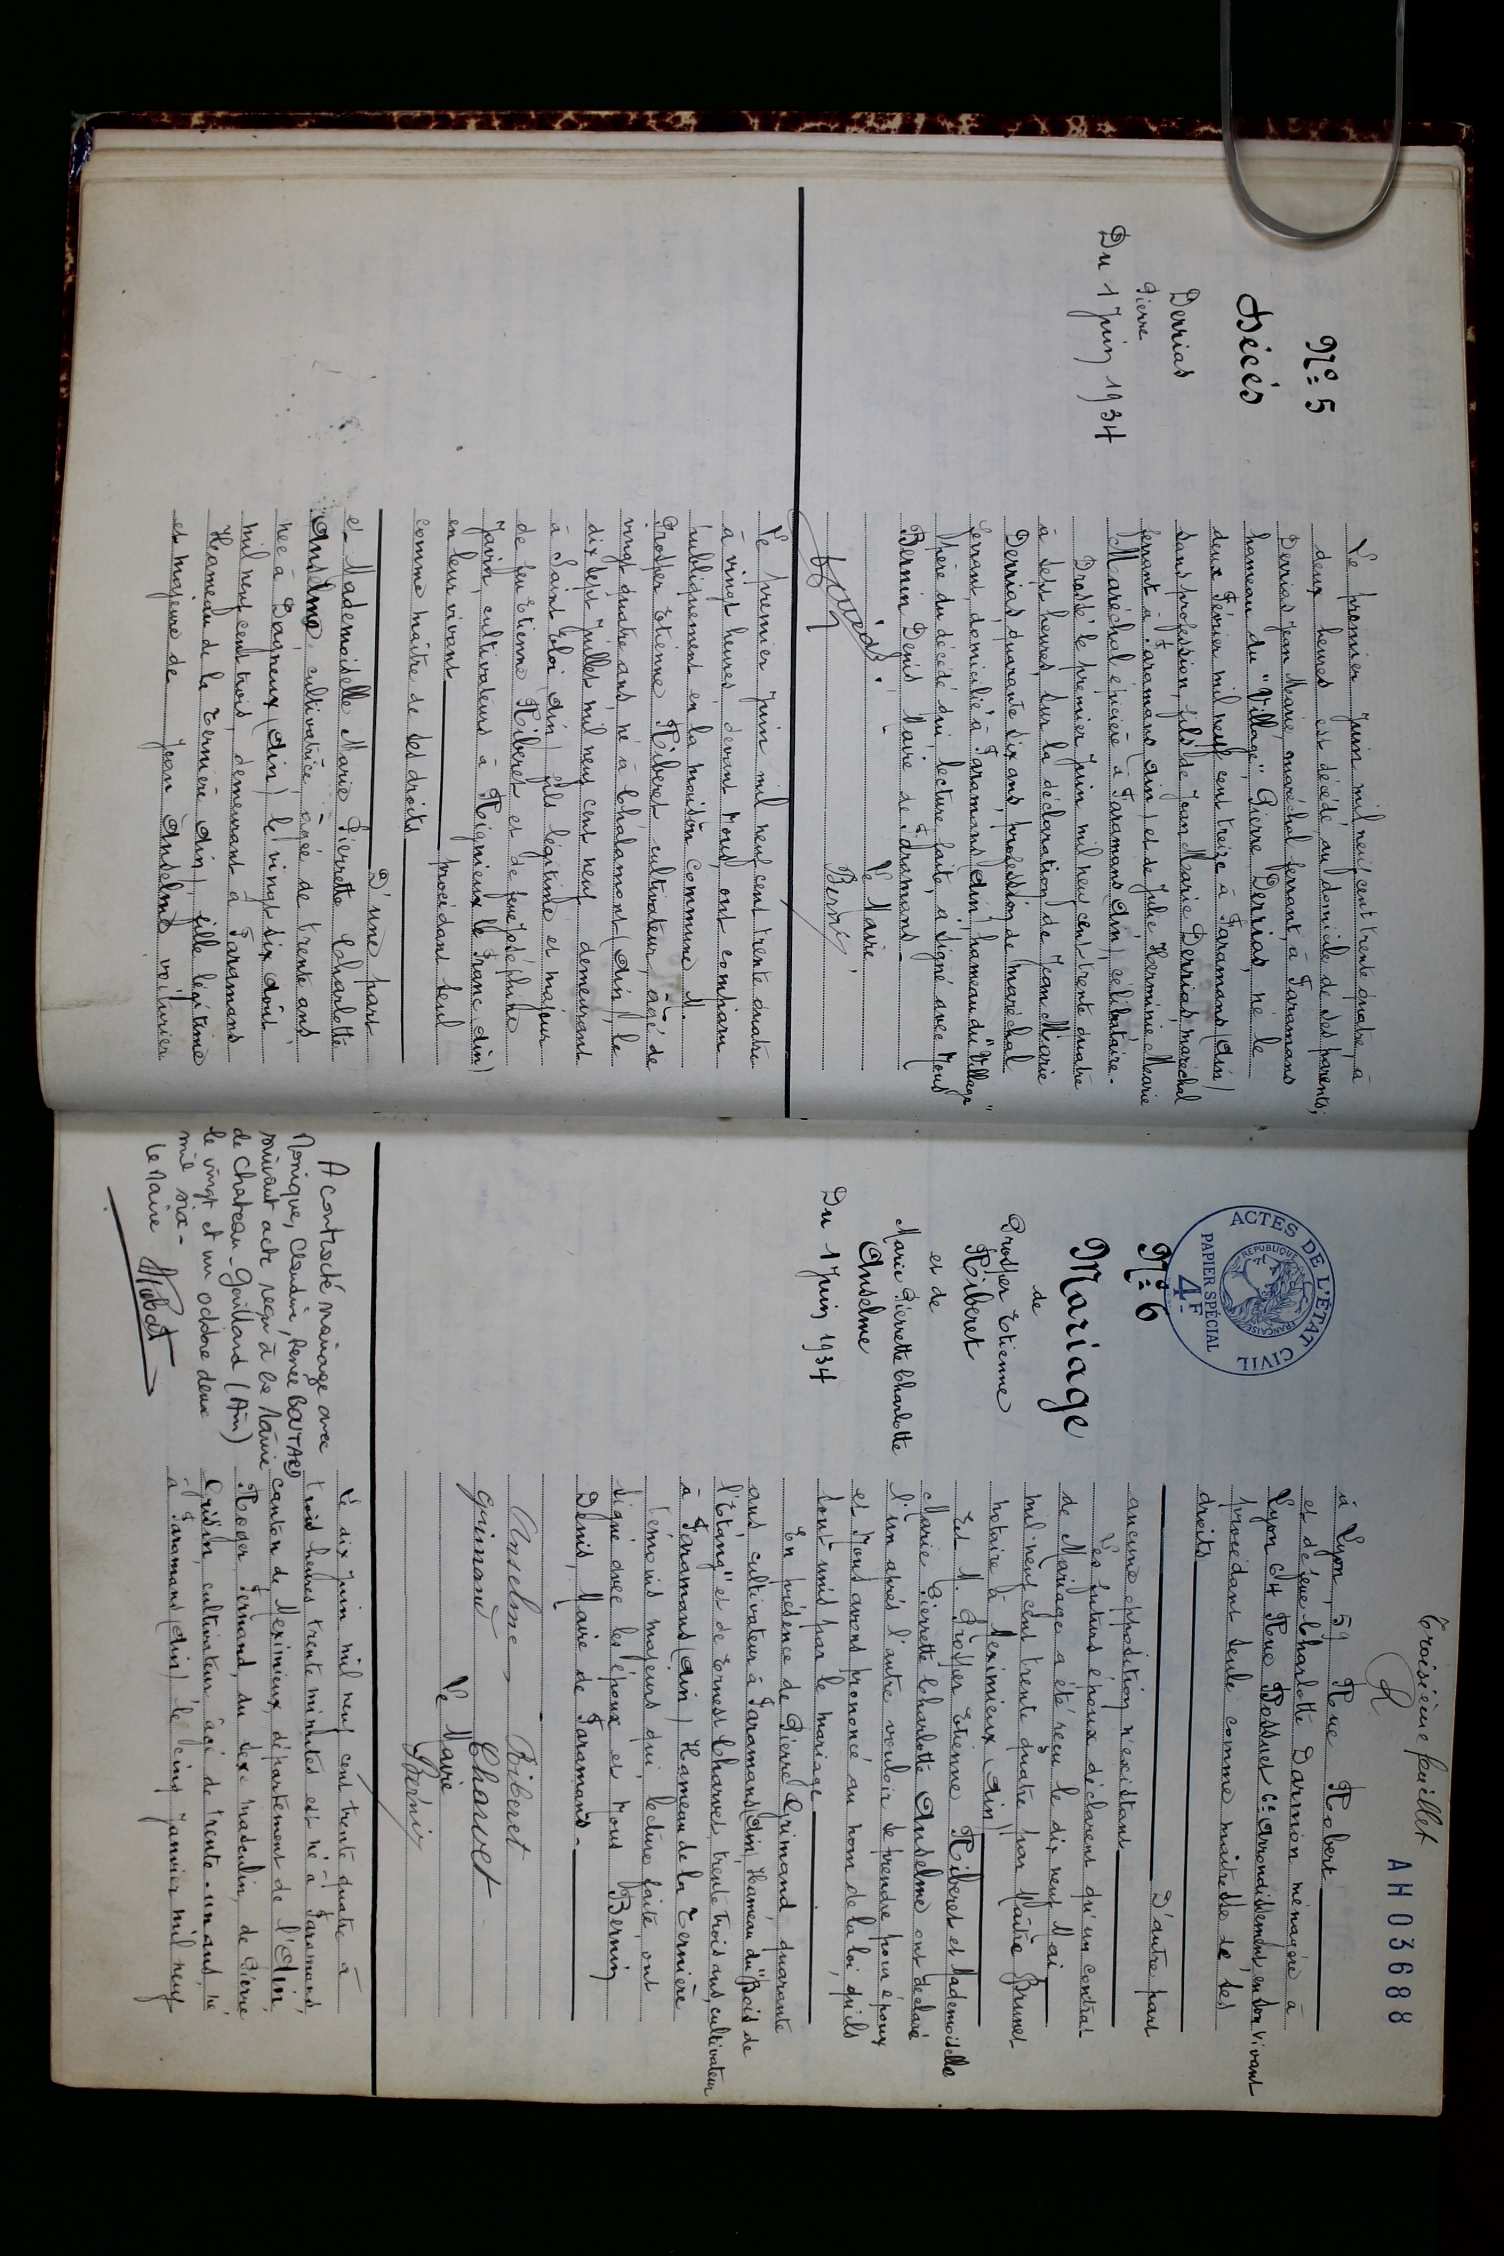 N° 5
Décès
Derrias
Pierre
Du 1 Juin 1934
Le premier Juin mil neuf cent trente quatre, à
deux heures est décédé, au domicile de ses parents,
Derrias Jean Marie, maréchal ferrant, à Faramans
hameau du "Village", Pierre Derrias, né le
deux Février mil neuf cent treize à Faramans (Ain)
sans profession, fils de Jean Marie Derrias, maréchal
ferrant à Faramans (Ain) et de Julie Herminie Marie
Maréchal épicière à Faramans (Ain), célibataire.
Dressé le premier Juin mil neuf cent trente quatre
à sept heures, sur la déclaration de Jean Marie
Derrias quarante six ans, profession de maréchal
ferrant, domicilié à Faramans (Ain) hameau du "Village"
père du décédé qui, lecture faite, a signé avec Nous
Bernin Denis Maire de Faramans-
Le Maire,
Bernin
Le premier Juin mil neuf cent trente quatre
à vingt heures, devant Nous, ont comparu
publiquement en la maison commune M.
Prosper Etienne Riberet cultivateur, âgé de
vingt quatre ans, né à Châlamont (Ain), le
dix sept Juillet mil neuf cent neuf demeurant
à Saint Eloi (Ain) fils légitime et majeur
de feu Etienne Riberet et de feue Joséphine
Javin, cultivateurs à Rignieux le Franc (Ain)
en leur vivant
procédant seul
comme maître de ses droits
D'une part
et Mademoiselle Marie Pierrette Charlotte
Anselme, cultivatrice, agée de trente ans,
née à Dagneux (Ain) le vingt six Août
mil neuf cent trois, demeurant à Faramans
Hameau de la Ternière (Ain), fille légitime
et majeure de Jean Anselme voiturier
Troisième feuillet
AH03688
ACTES DE L'ÉTAT CIVIL
RÉPUBLIQUE FRANÇAISE
PAPIER SPÉCIAL
4F
N° 6
Mariage
de
Prosper Etienne
Riberet
et de
Marie Pierrette Charlotte
Anselme
Du 1 Juin 1934
à Lyon, 59 Rue Robert
et de feue Charlotte Darmon ménagère à
Lyon 64 Rue Bossuet 6e arrondissement, en son vivant
procédant seule comme maîtresse de ses
droits
D'autre part
aucune opposition n'existant
Les futurs époux déclarent qu'un contrat
de Mariage a été reçu le dix neuf Mai
mil neuf cent trente quatre par Maître Brunet
notaire à Meximieux (Ain)
Et M. Prosper Etienne Riberet et Mademoiselle
Marie Pierrette Charlotte Anselme ont déclaré
l'un après l'autre vouloir se prendre pour époux
et Nous avons prononcé au nom de la loi, qu'ils
sont unis par le mariage
En présence de Pierre Grimand, quarante
ans, cultivateur à Faramans (Ain) Hameau du "Bois de
l'Etang" et de Ernest Charvet, trente trois ans, cultivateur
à Faramans (Ain) Hameau de la Ternière
témoins majeurs qui, lecture faite, ont
signé avec les époux et Nous Bernin
Denis, Maire de Faramans-
Anselme Riberet
Grimand Charvet
Le Maire
Bernin
A contracté mariage avec
Monique, Claudine, Renée BOUTARD
suivant acte reçu à la Mairie
de Chateau-Gaillard (Ain)
le vingt et un octobre deux
mil six-
Le Maire
Le dix Juin mil neuf cent trente quatre à
trois heures trente minutes est né à Faramans,
canton de Meximieux, département de l'Ain,
Roger, Fernand, du sexe masculin, de Pierre
Grison, cultivateur, âgé de trente-un ans, né
à Faramans (Ain) le cinq Janvier mil neuf